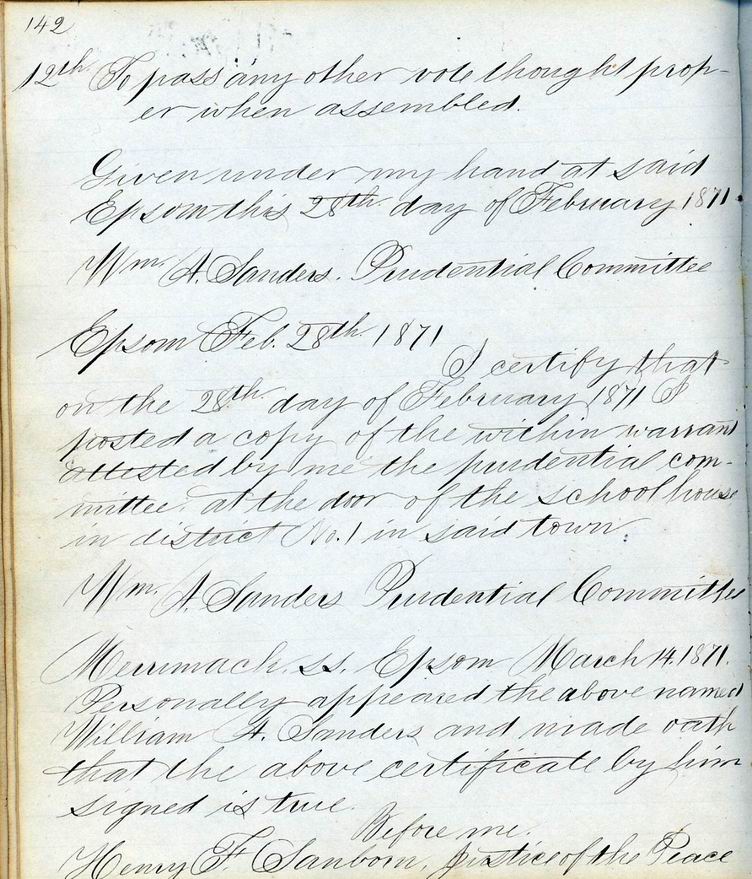 142
12th To pass any other vote thought prop-
er when assembled.
Given under my hand at said
Epsom this 28th day of February 1871.
Wm. A. Sanders. Prudential Committee
Epsom Feb. 28th 1871
I certify that
on the 28th day of February 1871 I
posted a copy of the within warrant
attested by me the prudential com-
mittee, at the door of the school house
in district No. 1 in said town
Wm. A. Sanders Prudential Committee
Merrimack. ss. Epsom March 14. 1871.
Personally appeared the above named
William A. Sanders and made oath
that the above certificate by him
signed is true.
Before me.
Henry F. Sanborn. Justice of the Peace